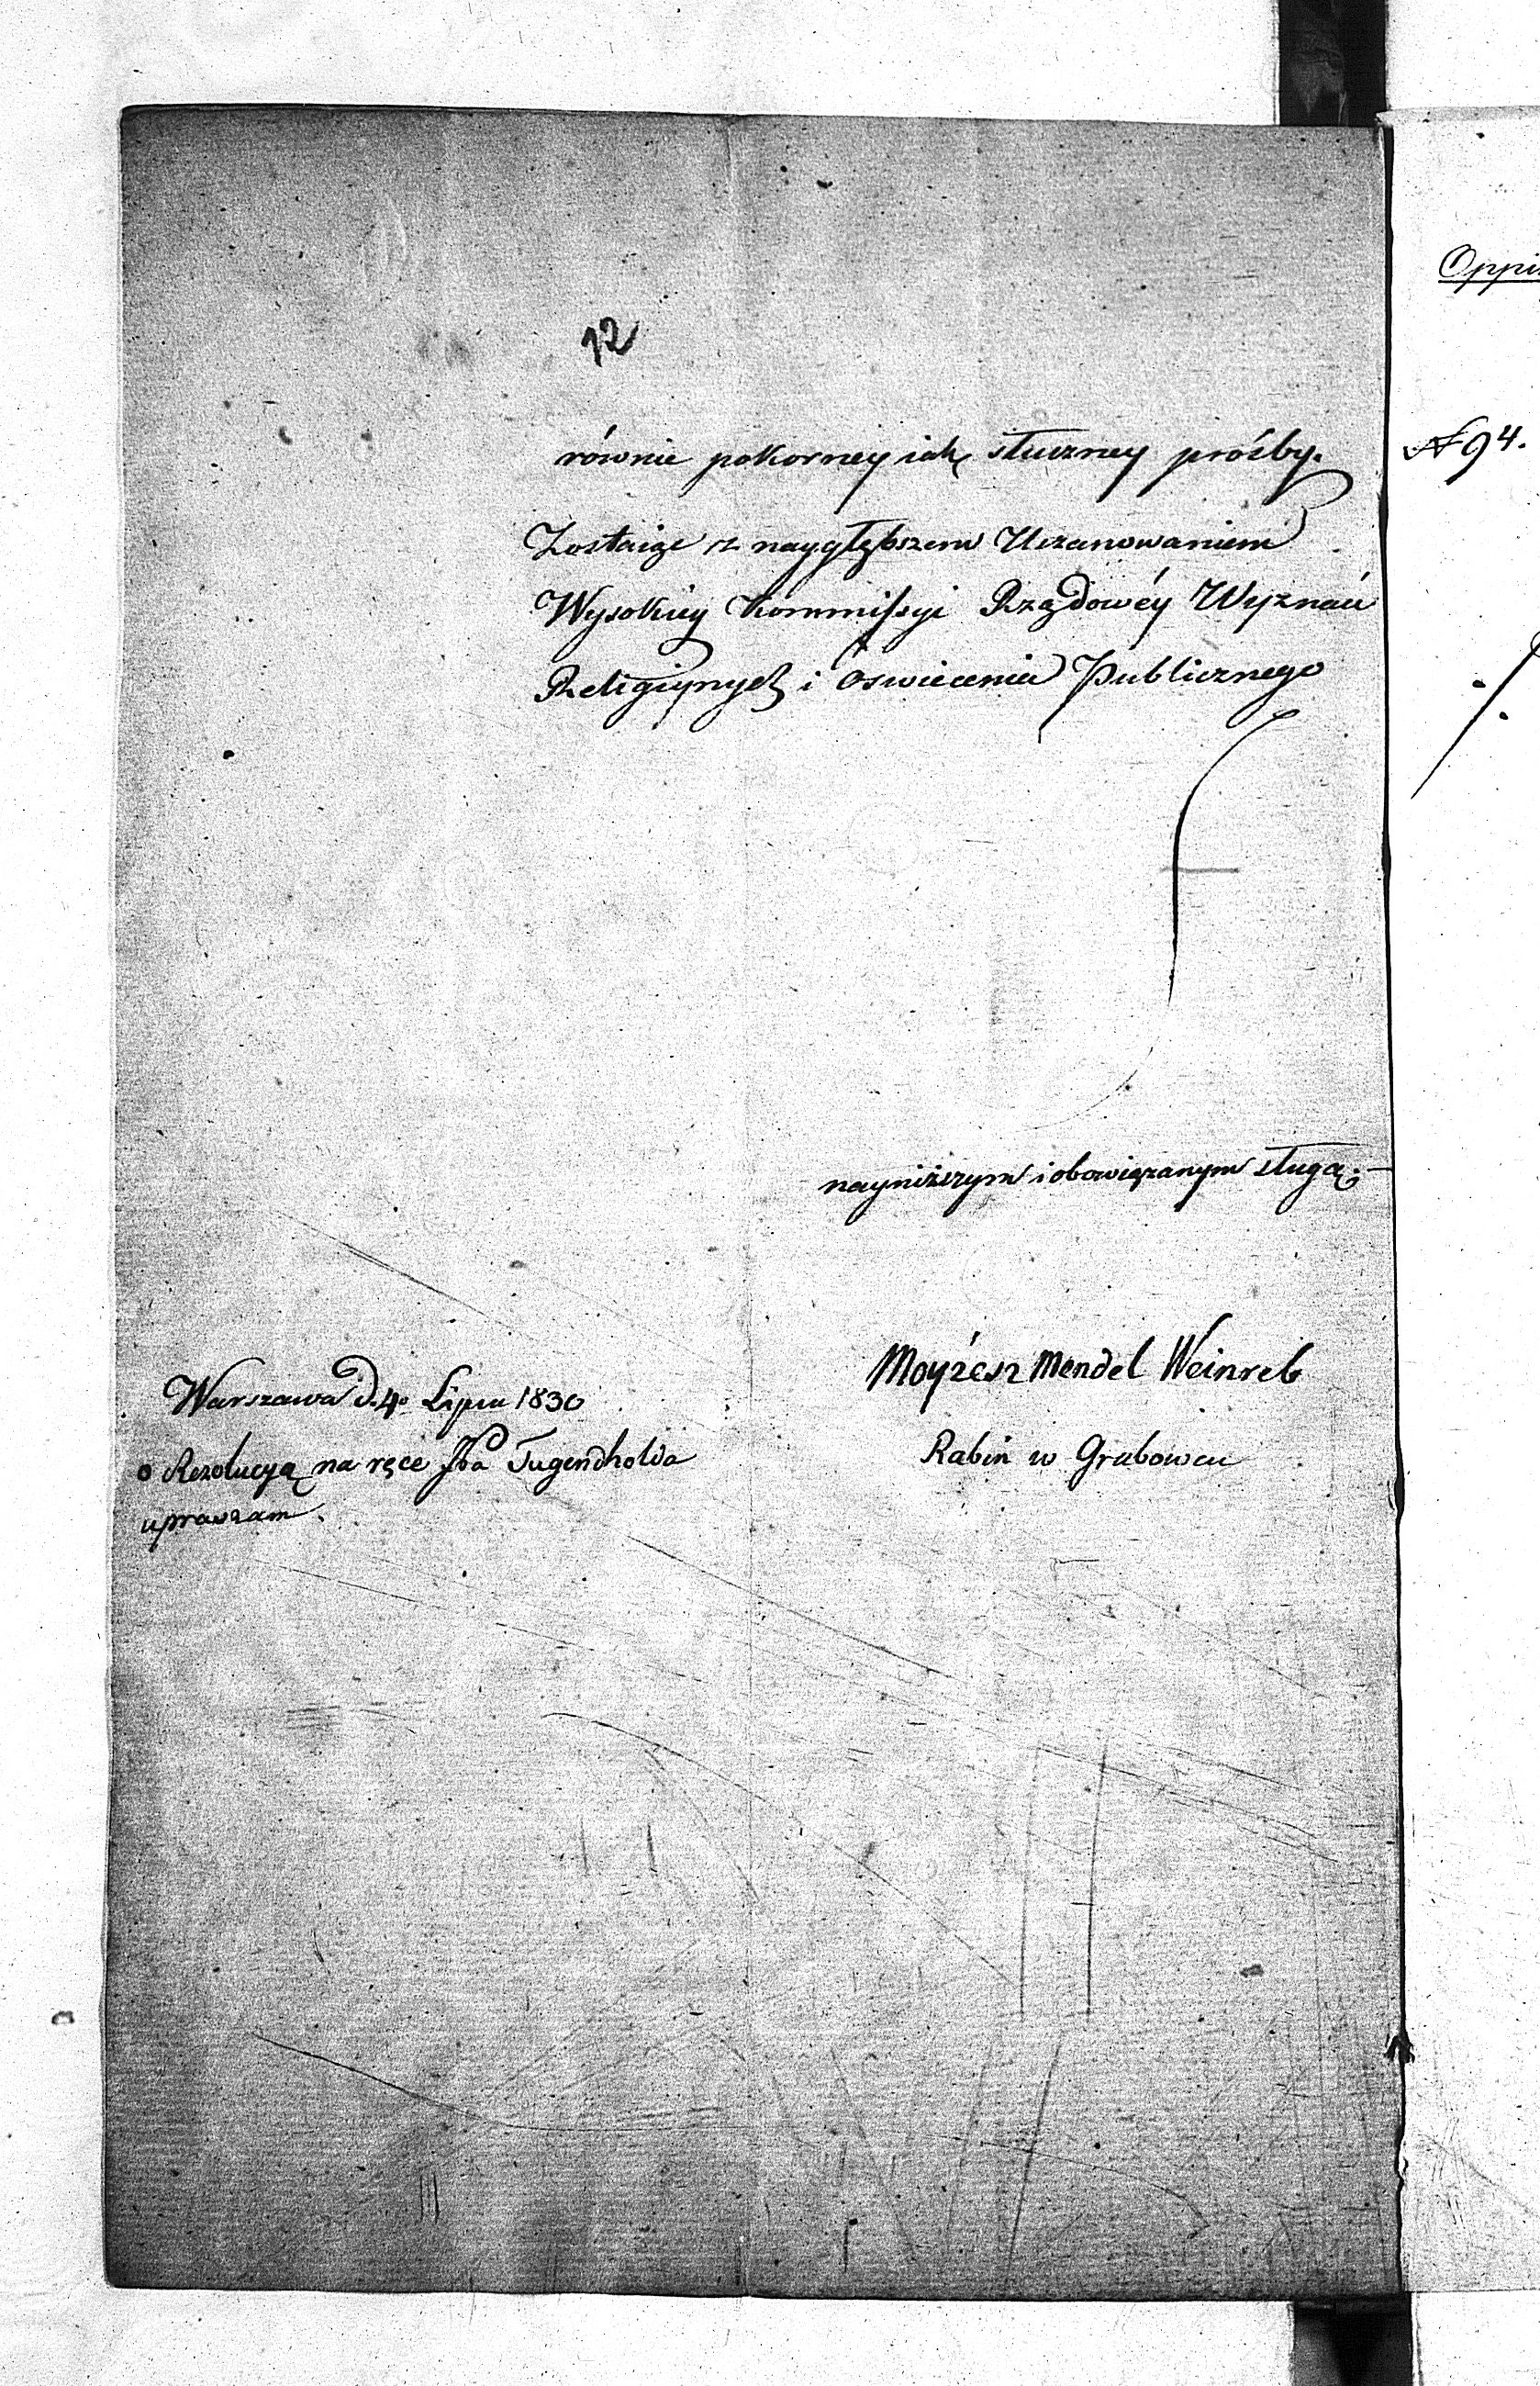 12
równie pokorney iak słuszney prośby.
Zostaię z naygłębszem Uszanowaniem
Wysokiey Kommissyi Rządowéy Wyznań
Religiynych i Oswiecenia Publicznego
nayniższym i obowiązanym sługą.
Moyżesz Mendel Weinreb
Rabin w Grabowcu
Warszawa d. 4º Lipca 1830
o Rezolucyą na ręce Tugendholda
upraszam.
Oppi
N 94.